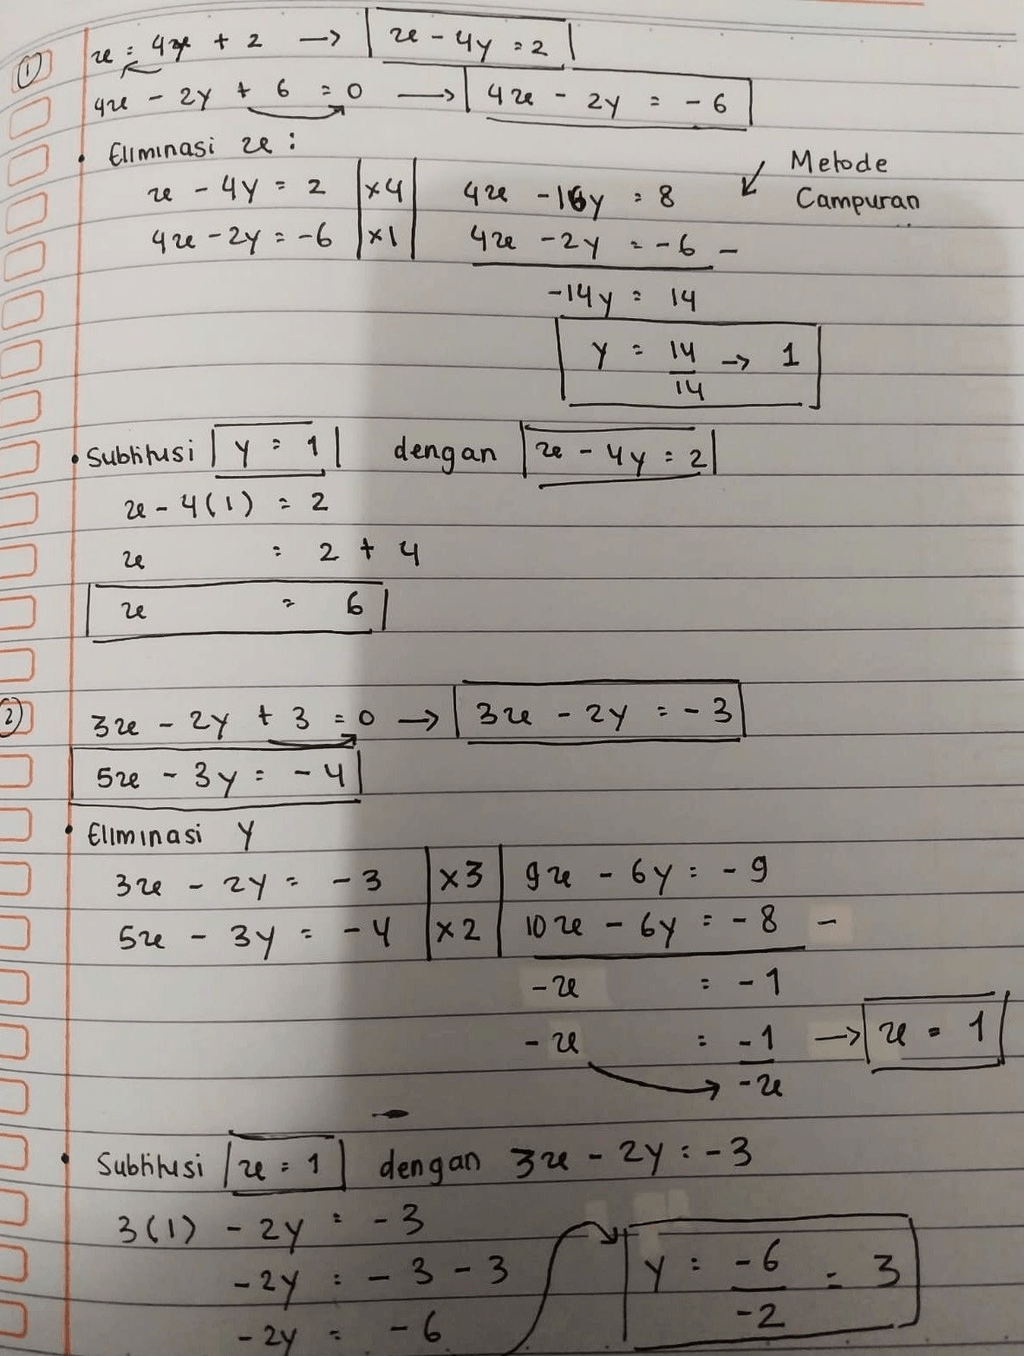 ① x = 4y + 2 → x - 4y = 2
4x - 2y + 6 = 0 → 4x - 2y = -6
• Eliminasi x :
Metode Campuran
x - 4y = 2 | x4 | 4x - 16y = 8
4x - 2y = -6 | x1 | 4x - 2y = -6 -
-14y = 14
y = 14/14 → 1
• Subtitusi y = 1 dengan x - 4y = 2
x - 4(1) = 2
x = 2 + 4
x = 6
② 3x - 2y + 3 = 0 → 3x - 2y = -3
5x - 3y = -4
• Eliminasi y
3x - 2y = -3 | x3 | 9x - 6y = -9
5x - 3y = -4 | x2 | 10x - 6y = -8 -
-x = -1
-x = -1/-x → x = 1
• Subtitusi x = 1 dengan 3x - 2y = -3
3(1) - 2y = -3
-2y = -3 - 3
-2y = -6
y = -6/-2 = 3